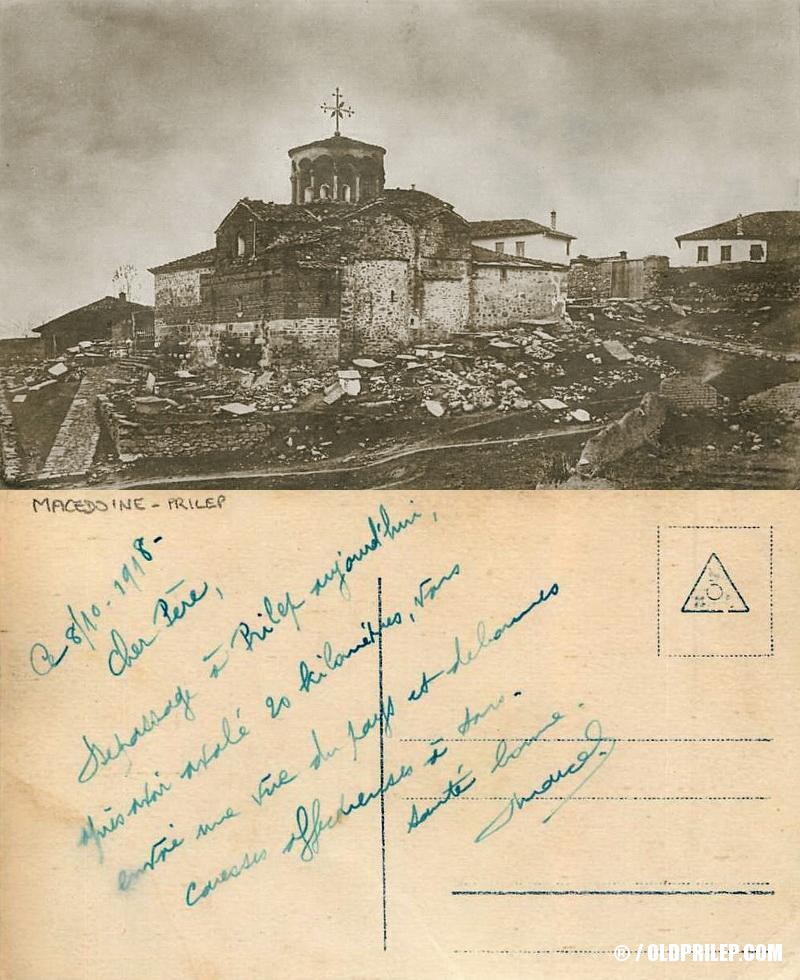 MACEDOINE - PRILEP
Ce 8/10-1918-
Cher Père,
De passage à Prilep aujourd'hui,
après avoir avalé 20 kilomètres, vous
envoie une vue du pays et de bonnes
caresses affectueuses à tous.
Santé bonne.
Marcel
® / OLDPRILEP.COM